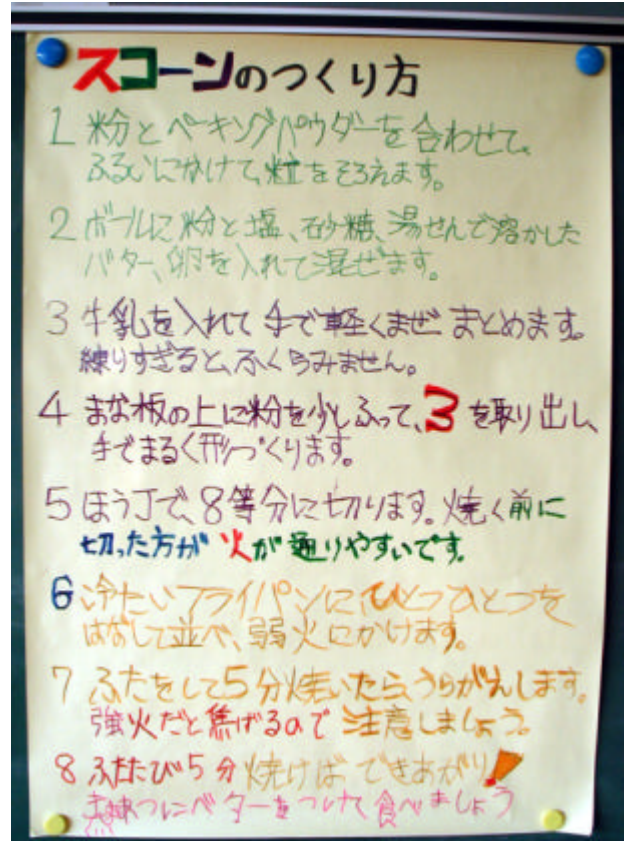 スコーンのつくり方
1 粉とベーキングパウダーを合わせて、
ふるいにかけて、粒をそろえます。
2 ボールに粉と塩、砂糖、湯せんで溶かした
バター、卵を入れて混ぜます。
3 牛乳を入れて手で軽くまぜまとめます。
練りすぎると、ふくらみません。
4 まな板の上に粉を少しふって、3を取り出し、
手でまるく形づくります。
5 ほう丁で、8等分に切ります。焼く前に
切った方が火が通りやすいです。
6 冷たいフライパンにひとつひとつを
はなして並べ、弱火にかけます。
7 ふたをして5分焼いたら、うらがえします。
強火だと焦げるので注意しましょう。
8 ふたたび5分焼けばできあがり!
バターをつけて食べましょう